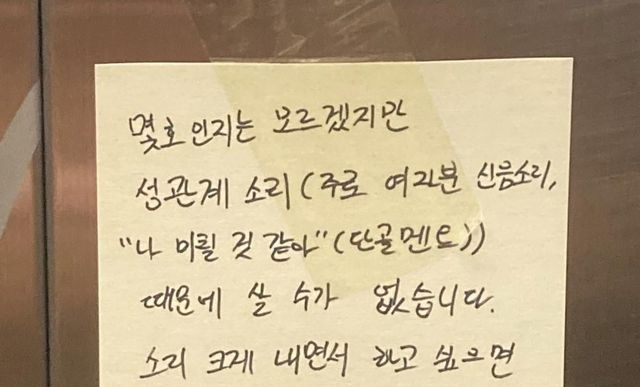 몇호인지는 모르겠지만
성관계 소리 (주로 여자분 신음소리,
"나 미칠 것 같아" (단골멘트))
때문에 살 수가 없습니다.
소리 크게 내면서 하고 싶으면